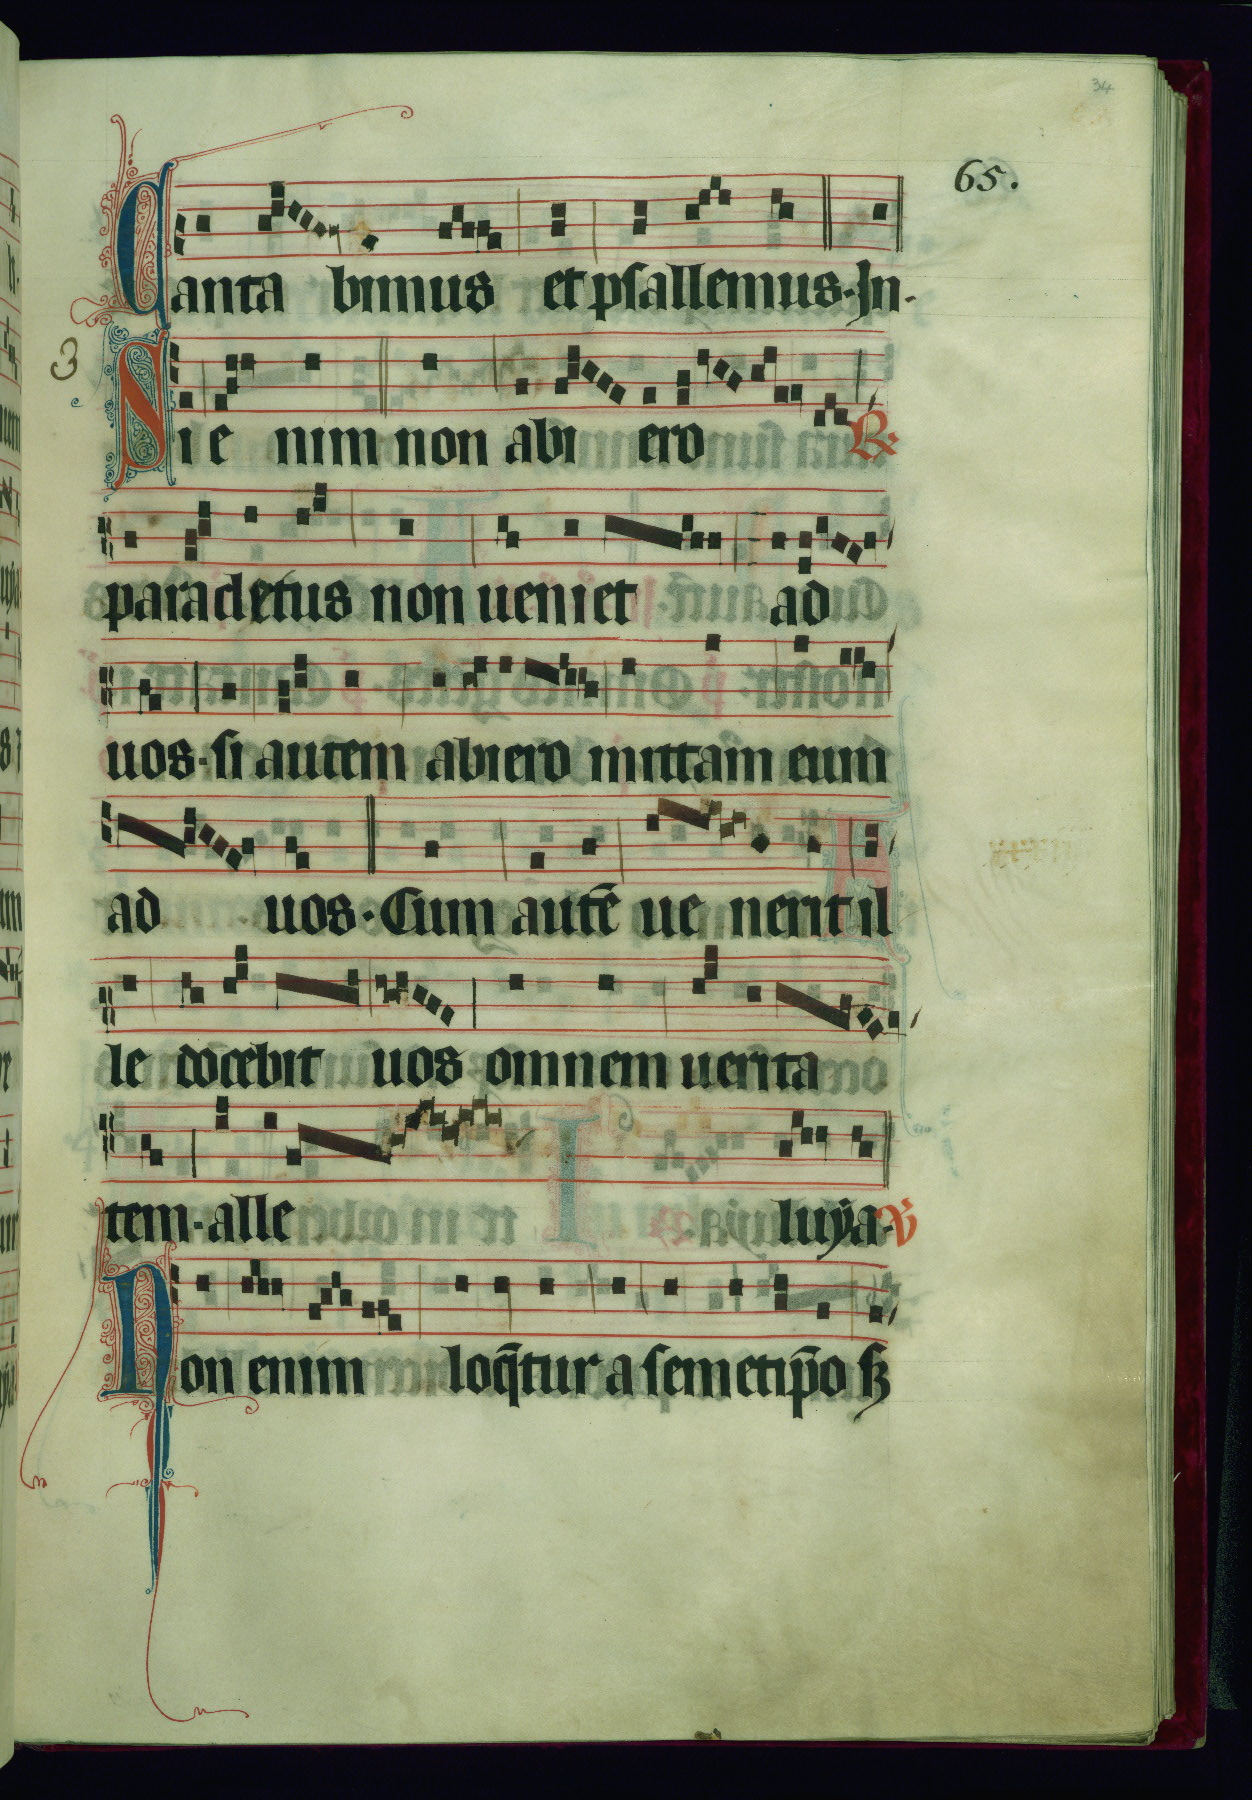 34
65.
Canta bimus et psallemus. In.
3
Si e nim non abi ero R.
paracletus non ueniet ad
uos. si autem abiero mittam eum
ad uos. Cum autē ue nerit il
le docebit uos omnem uerita
tem. alle luya. V
Non enim loq̄tur a semetip̄o sꝫ